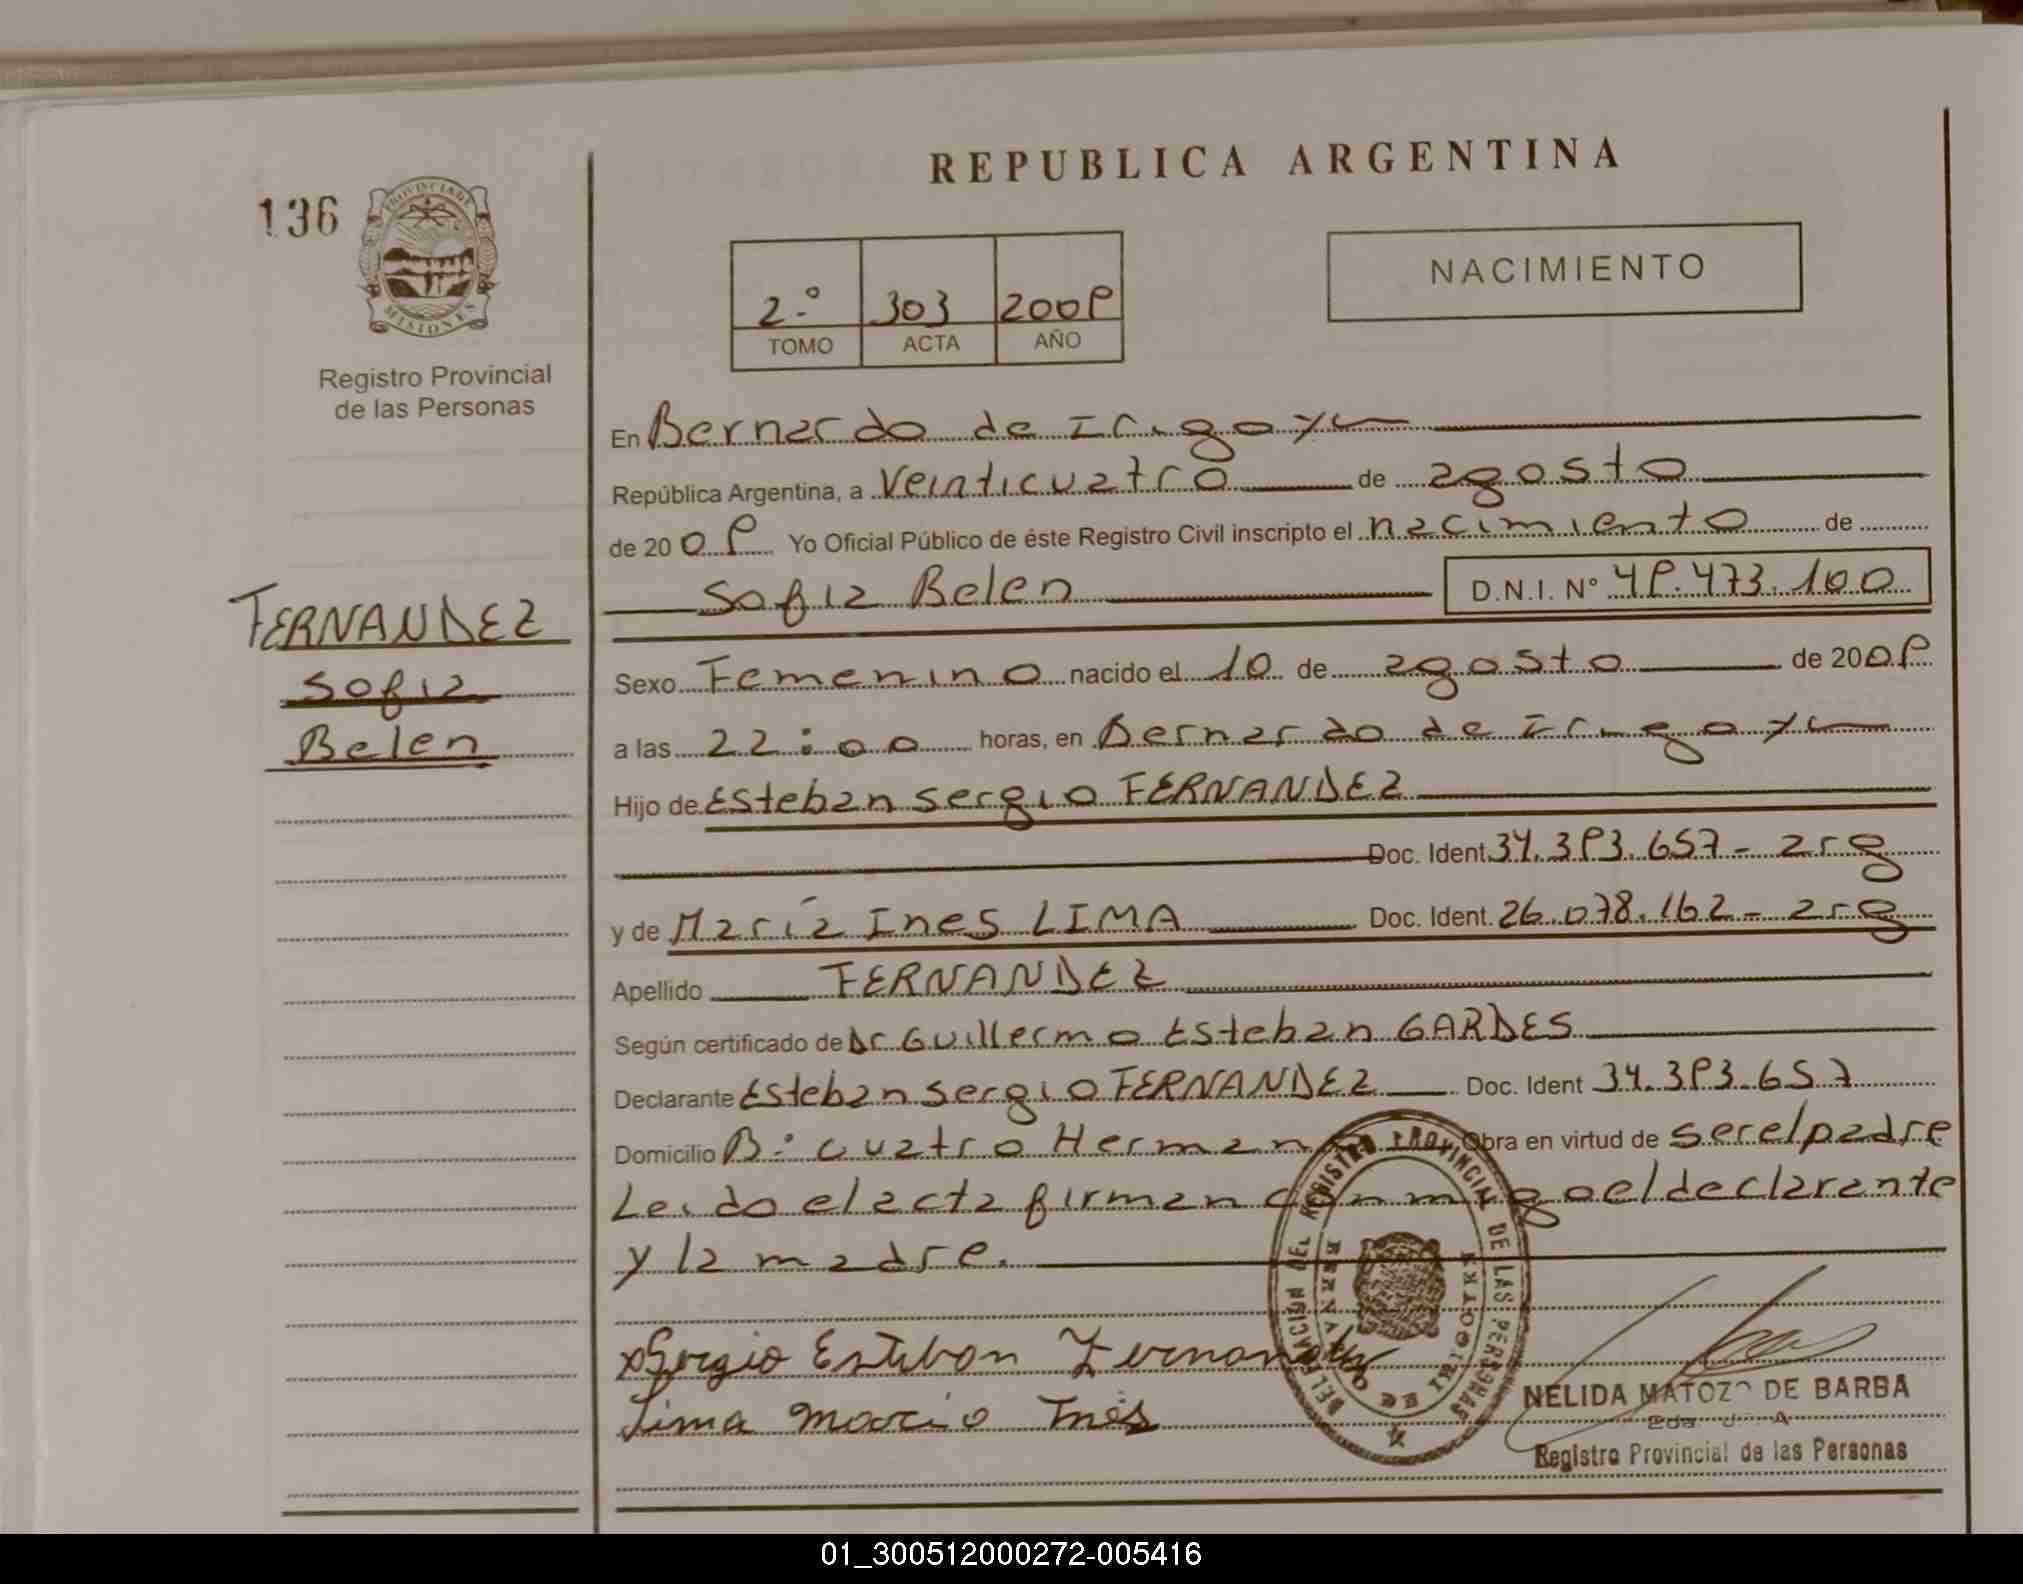 REPUBLICA ARGENTINA
136
PROVINCIA DE MISIONES
Registro Provincial
de las Personas
2.º 303 2009
TOMO ACTA AÑO
NACIMIENTO
En Bernardo de Irigoyen
República Argentina, a Veinticuatro de agosto
de 2009 Yo Oficial Público de éste Registro Civil inscripto el nacimiento de
Sofia Belen D.N.I. N° 49.473.100
FERNANDEZ
Sofia
Belen
Sexo Femenino nacido el 10 de agosto de 2009
a las 22:00 horas, en Bernardo de Irigoyen
Hijo de Esteban sergio FERNANDEZ
Doc. Ident. 34.393.657 - arg
y de María Ines LIMA Doc. Ident. 26.078.162 - arg
Apellido FERNANDEZ
Según certificado de Dr Guillermo Esteban GARDES
Declarante Esteban sergio FERNANDEZ Doc. Ident 34.393.657
Domicilio B: cuatro Hermanos Obra en virtud de ser el padre
Leido el acta firman conmigo el declarante
y la madre.
DELEGACION DEL REGISTRO PROVINCIAL DE LAS PERSONAS
BERNARDO DE IRIGOYEN
Sergio Esteban Fernandez
Lima Maria Inés
NELIDA MATOZO DE BARBA
Registro Provincial de las Personas
01_300512000272-005416